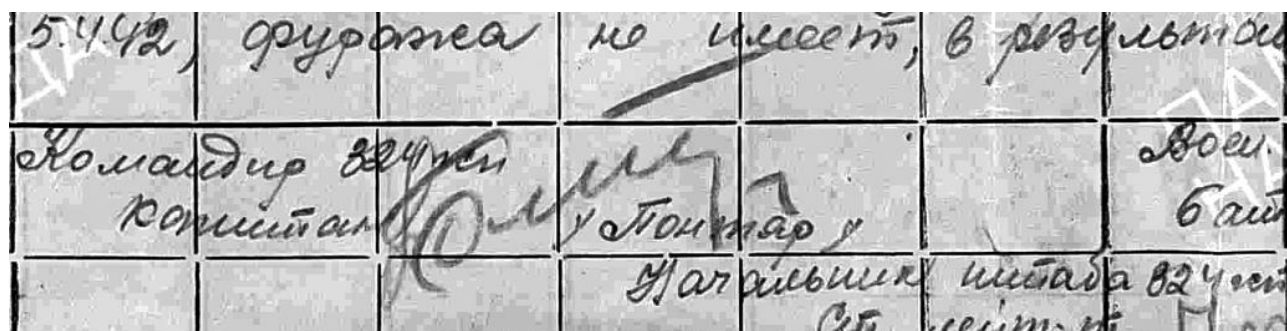 5.4.42, фуража не имеет, в результа
Командир 324 сп Воен.
капитан /Понтар/ бат
Начальник штаба 324 сп
Ст. лейт-т